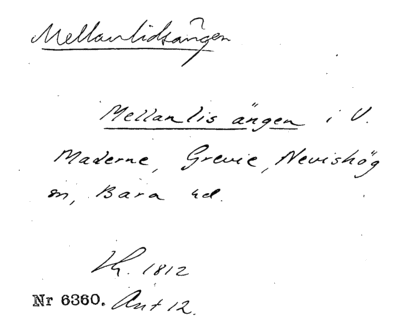 Mellantidsängen
Mellanlis ängen i V.
Maderne, Grevie, Nevishög
sn, Bara hd.
Lh. 1812
Nr 6360. Akt 12.